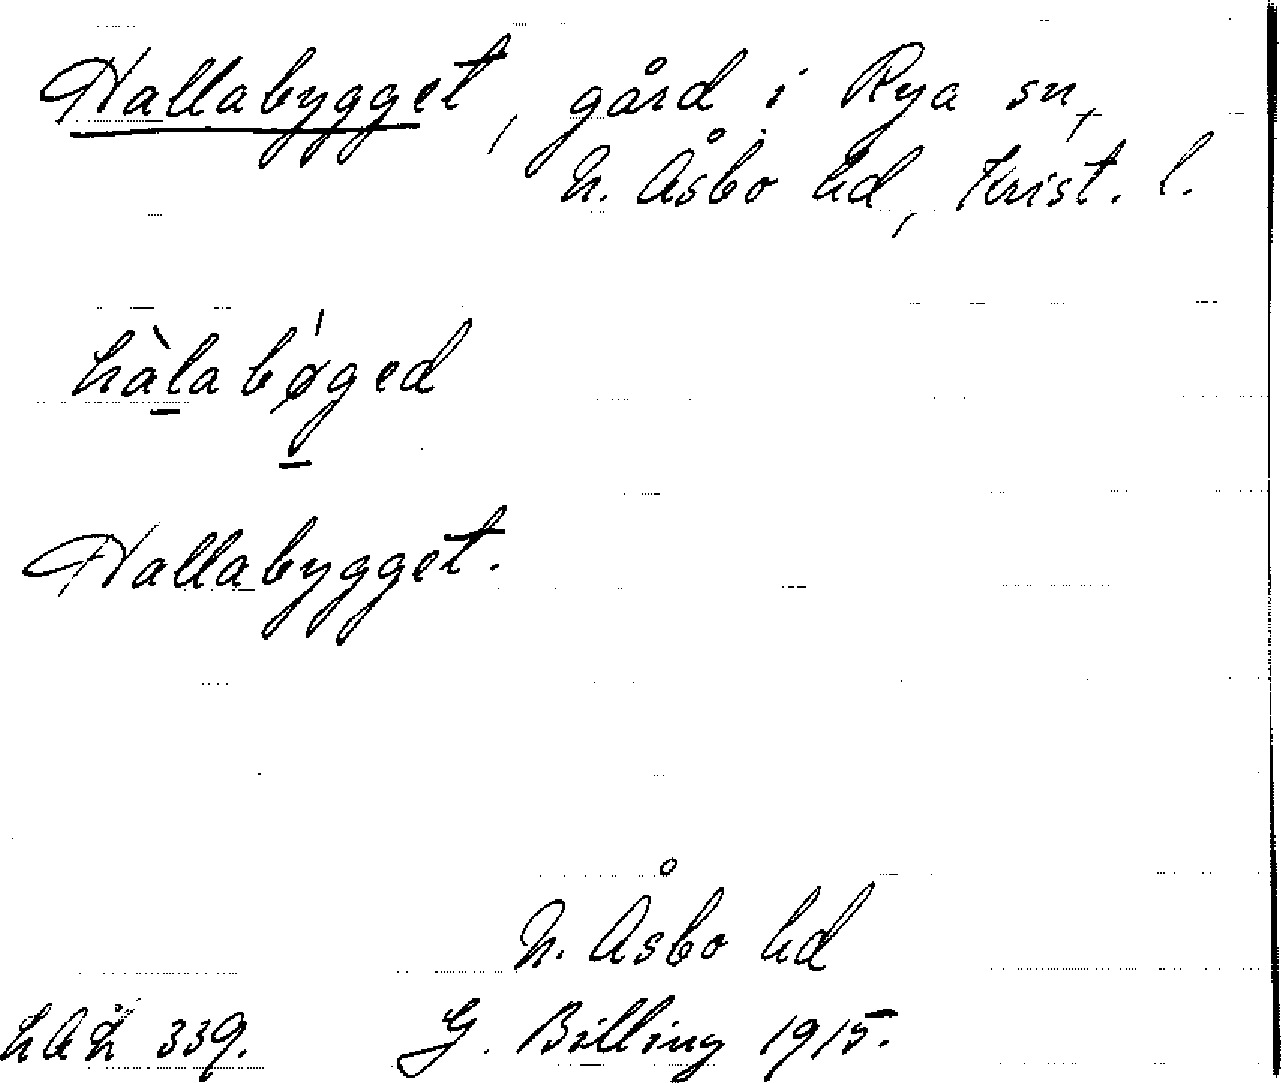 Hallabygget, gård i Rya sn,
N. Åsbo hd, Krist. l.
hàlabǿged
Hallabygget.
N. Åsbo hd
G. Billing 1915.
339.